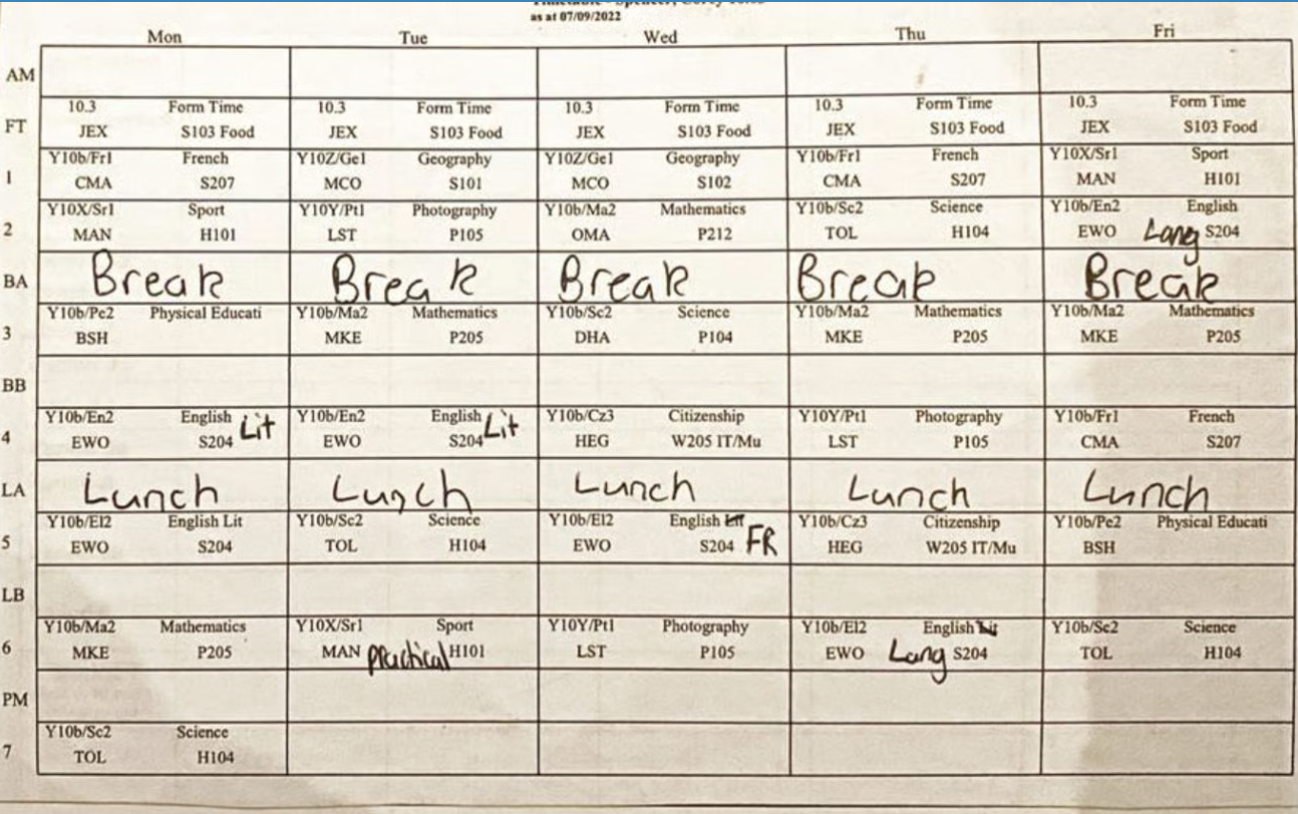 as at 07/09/2022
Mon Tue Wed Thu Fri
AM
10.3 Form Time 10.3 Form Time 10.3 Form Time 10.3 Form Time 10.3 Form Time
FT
JEX S103 Food JEX S103 Food JEX S103 Food JEX S103 Food JEX S103 Food
Y10b/Fr1 French Y10Z/Ge1 Geography Y10Z/Ge1 Geography Y10b/Fr1 French Y10X/Sr1 Sport
1
CMA S207 MCO S101 MCO S102 CMA S207 MAN H101
Y10X/Sr1 Sport Y10Y/Pt1 Photography Y10b/Ma2 Mathematics Y10b/Sc2 Science Y10b/En2 English
2
MAN H101 LST P105 OMA P212 TOL H104 EWO Lang S204
BA Break Break Break Break Break
Y10b/Pe2 Physical Educati Y10b/Ma2 Mathematics Y10b/Sc2 Science Y10b/Ma2 Mathematics Y10b/Ma2 Mathematics
3
BSH MKE P205 DHA P104 MKE P205 MKE P205
BB
Y10b/En2 English Lit Y10b/En2 English Lit Y10b/Cz3 Citizenship Y10Y/Pt1 Photography Y10b/Fr1 French
4
EWO S204 EWO S204 HEG W205 IT/Mu LST P105 CMA S207
LA Lunch Lunch Lunch Lunch Lunch
Y10b/El2 English Lit Y10b/Sc2 Science Y10b/El2 English Lit Y10b/Cz3 Citizenship Y10b/Pe2 Physical Educati
5
EWO S204 TOL H104 EWO S204 FR HEG W205 IT/Mu BSH
LB
Y10b/Ma2 Mathematics Y10X/Sr1 Sport Y10Y/Pt1 Photography Y10b/El2 English Lit Y10b/Sc2 Science
6
MKE P205 MAN practical H101 LST P105 EWO Lang S204 TOL H104
PM
Y10b/Sc2 Science
7
TOL H104